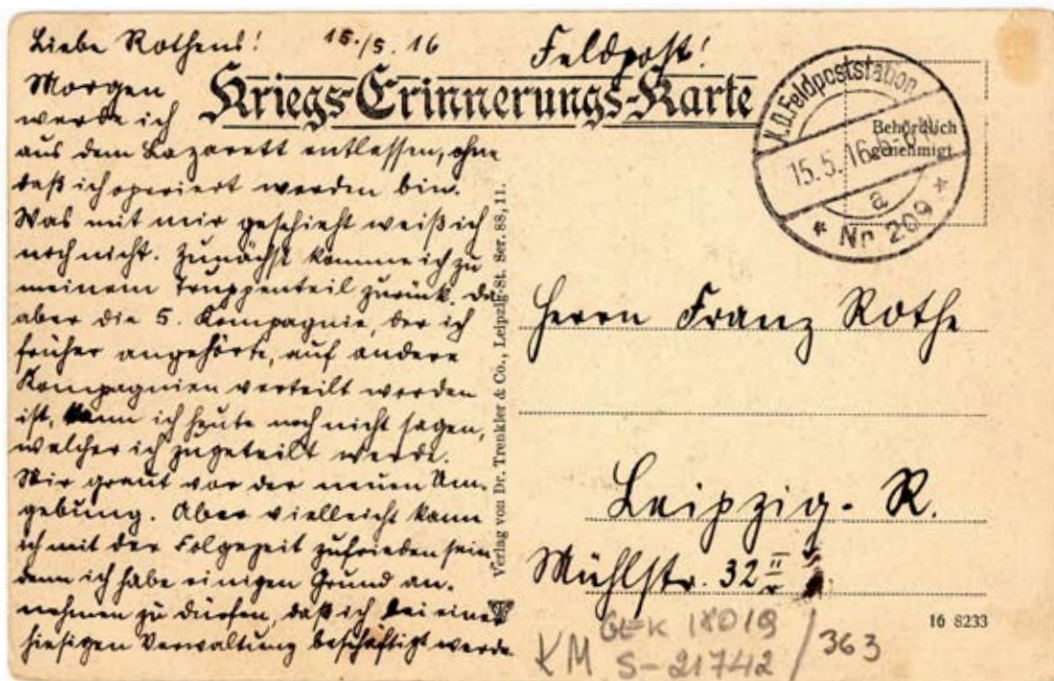 Liebe Rothens! 15./5. 16
Feldpost!
Kriegs-Erinnerungs-Karte
Morgen
werde ich
aus dem Lazarett entlassen, ohne
daß ich operiert worden bin.
Was mit mir geschieht weiß ich
noch nicht. Zunächst komme ich zu
meinem Truppenteil zurück. Da
aber die 5. Kompagnie, der ich
früher angehörte, auf andere
Kompagnien verteilt worden
ist, kann ich heute noch nicht sagen,
welcher ich zugeteilt werde.
Mir graut vor der neuen Um-
gebung. Aber vielleicht kann
ich mit der Folgezeit zufrieden sein,
denn ich habe einigen Grund an-
nehmen zu dürfen, daß ich bei einer
hiesigen Verwaltung beschäftigt werde.
Verlag von Dr. Trenkler & Co., Leipzig-St. Ser. 88, 11.
K.D.Feldpoststation
15.5.16
a
* Nr. 209 *
Behördlich
genehmigt
Herrn Franz Rothe
Leipzig-R.
Mühlstr. 32 II
16 8233
GEK 18019
KM S-21742 / 363